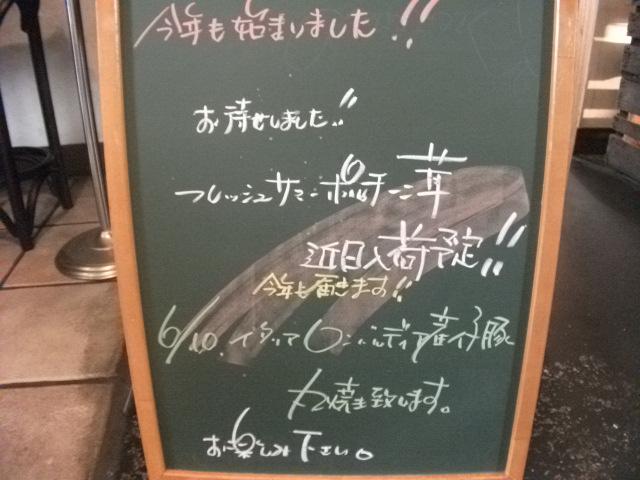 今年も始まりました!!
お待せしました!!
フレッシュサマーポルチーニ茸
近日入荷予定!!
今年も届きます!!
6/10. イタリア ロンバルディア産仔豚
丸焼き致します。
お楽しみ下さい。